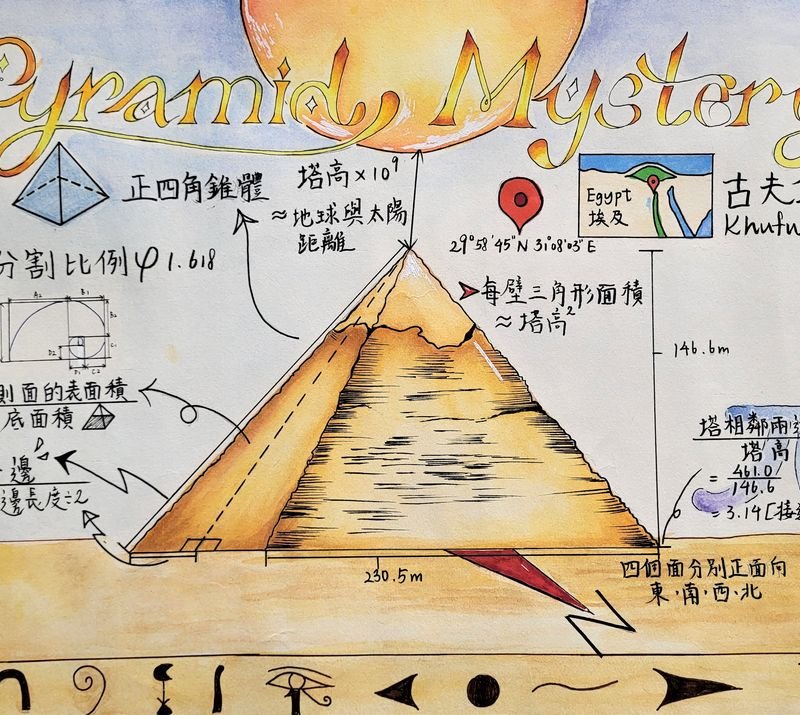 Pyramid Mystery
正四角錐體
塔高×10⁹
≈地球與太陽
距離
29°58'45"N 31°08'03"E
Egypt
埃及
古夫
Khufu
分割比例φ1.618
每壁三角形面積
≈塔高²
146.6m
A2
B1
B2
C1
D2
D1
C2
側面的表面積
底面積
邊
邊長度÷2
塔相鄰兩
塔高
= 461.0/146.6
= 3.14[接
230.5m
四個面分別正面向
東·南·西·北
N